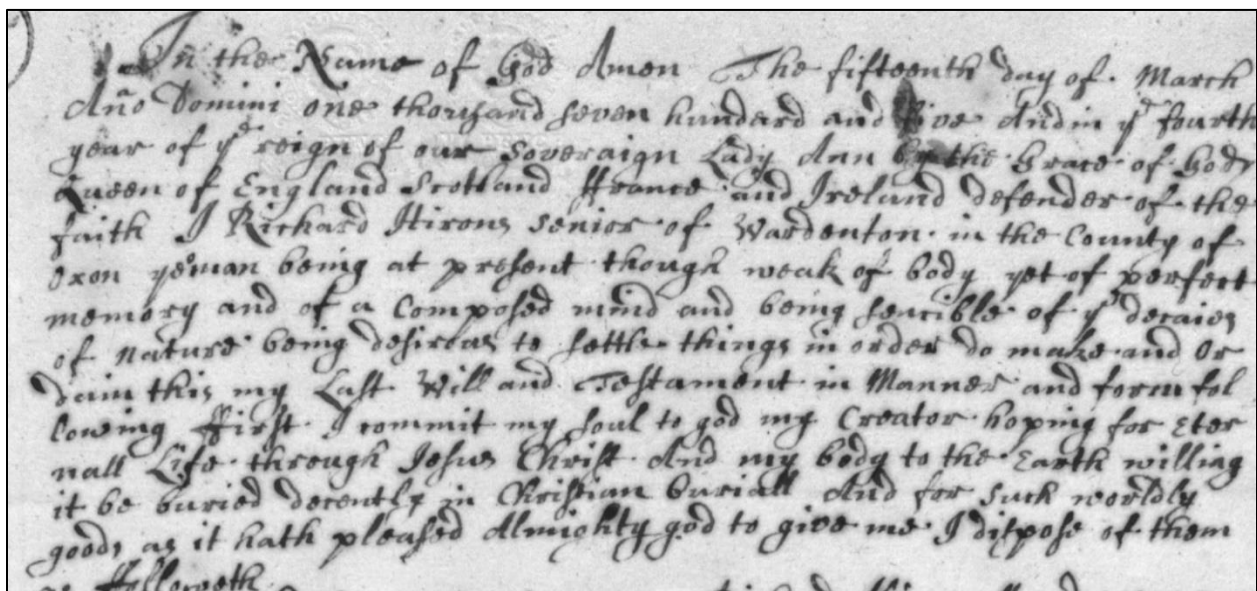 In the Name of God Amen The fifteenth day of March
Año Domini one thousand seven hundard and five And in yᵉ fourth
year of yᵉ reign of our Soveraign Lady Ann by the Grace of God
Queen of England Scotland ffrance and Ireland defender of the
faith I Richard Hirons Senior of Wardenton in the County of
Oxon yeoman being at present though weak of body yet of perfect
memory and of a Composed mind and being sencible of yᵉ decaies
of Nature being desiras to settle things in order do make and Or
dain this my Last Will and Testament in Manner and form fol
lowing ffirst I commit my soul to god my Creator hoping for Eter
nall Life through Jesus Christ And my body to the Earth willing
it be buried decently in Christian buriall And for such worldly
goods as it hath pleased Almighty god to give me I dispose of them
as ffolloweth